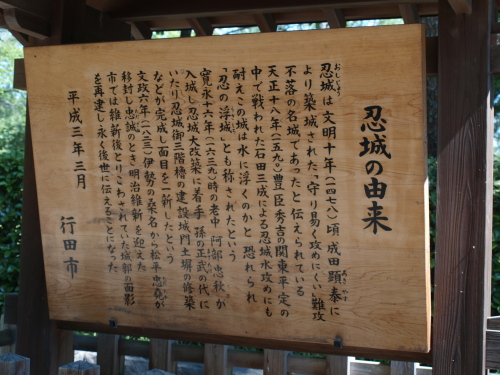 忍城の由来
おしじょう
なりたあきやす
忍城は文明十年(一四七八)頃成田顕泰に
より築城された「守り易く攻めにくい」難攻
不落の名城であったと伝えられている
天正十八年(一五九〇)豊臣秀吉の関東平定の
中で戦われた石田三成による忍城水攻めにも
耐えこの城は水に浮くのかと恐れられ
「忍の浮城」とも称されたという
寛永十六年(一六三九)時の老中 阿部忠秋が
入城し忍城大改築に着手 孫の正武の代に
いたり忍城御三階櫓の建設城門土塀の修築
などが完成し面目を一新したという
文政六年(一八二三)伊勢の桑名から松平忠堯が
移封し忠誠のとき明治維新を迎えた
市では維新後とりこわされていた城郭の面影
を再建し永く後世に伝えることになった
平成三年三月
行田市